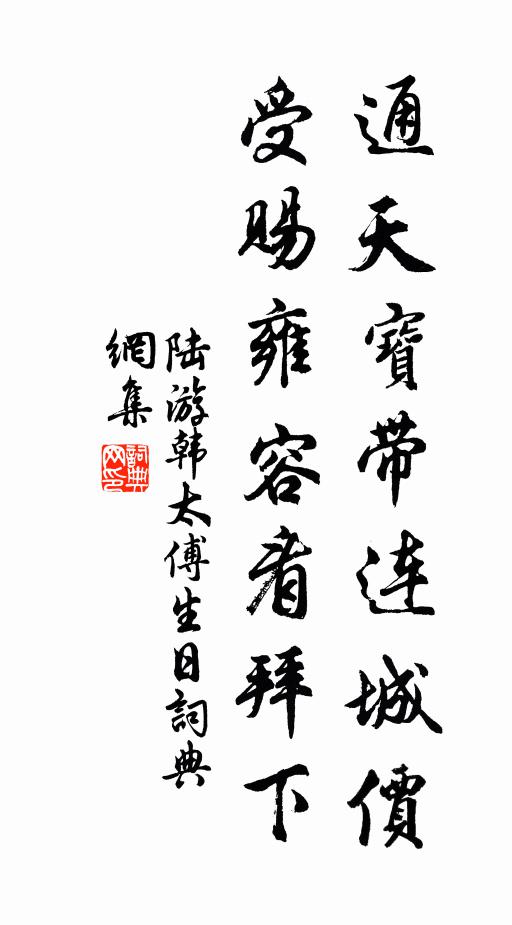 通天寶帶连城價
受賜雍容看拜下
陆游韩太傅生日詞典
網集
詞典
网印